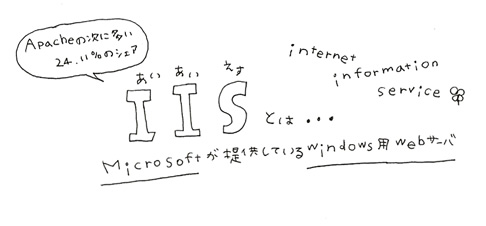 Apacheの次に多い
24.11%のシェア
internet
information
service
あい あい えす
IIS とは・・・
Microsoftが提供しているwindows用webサーバ